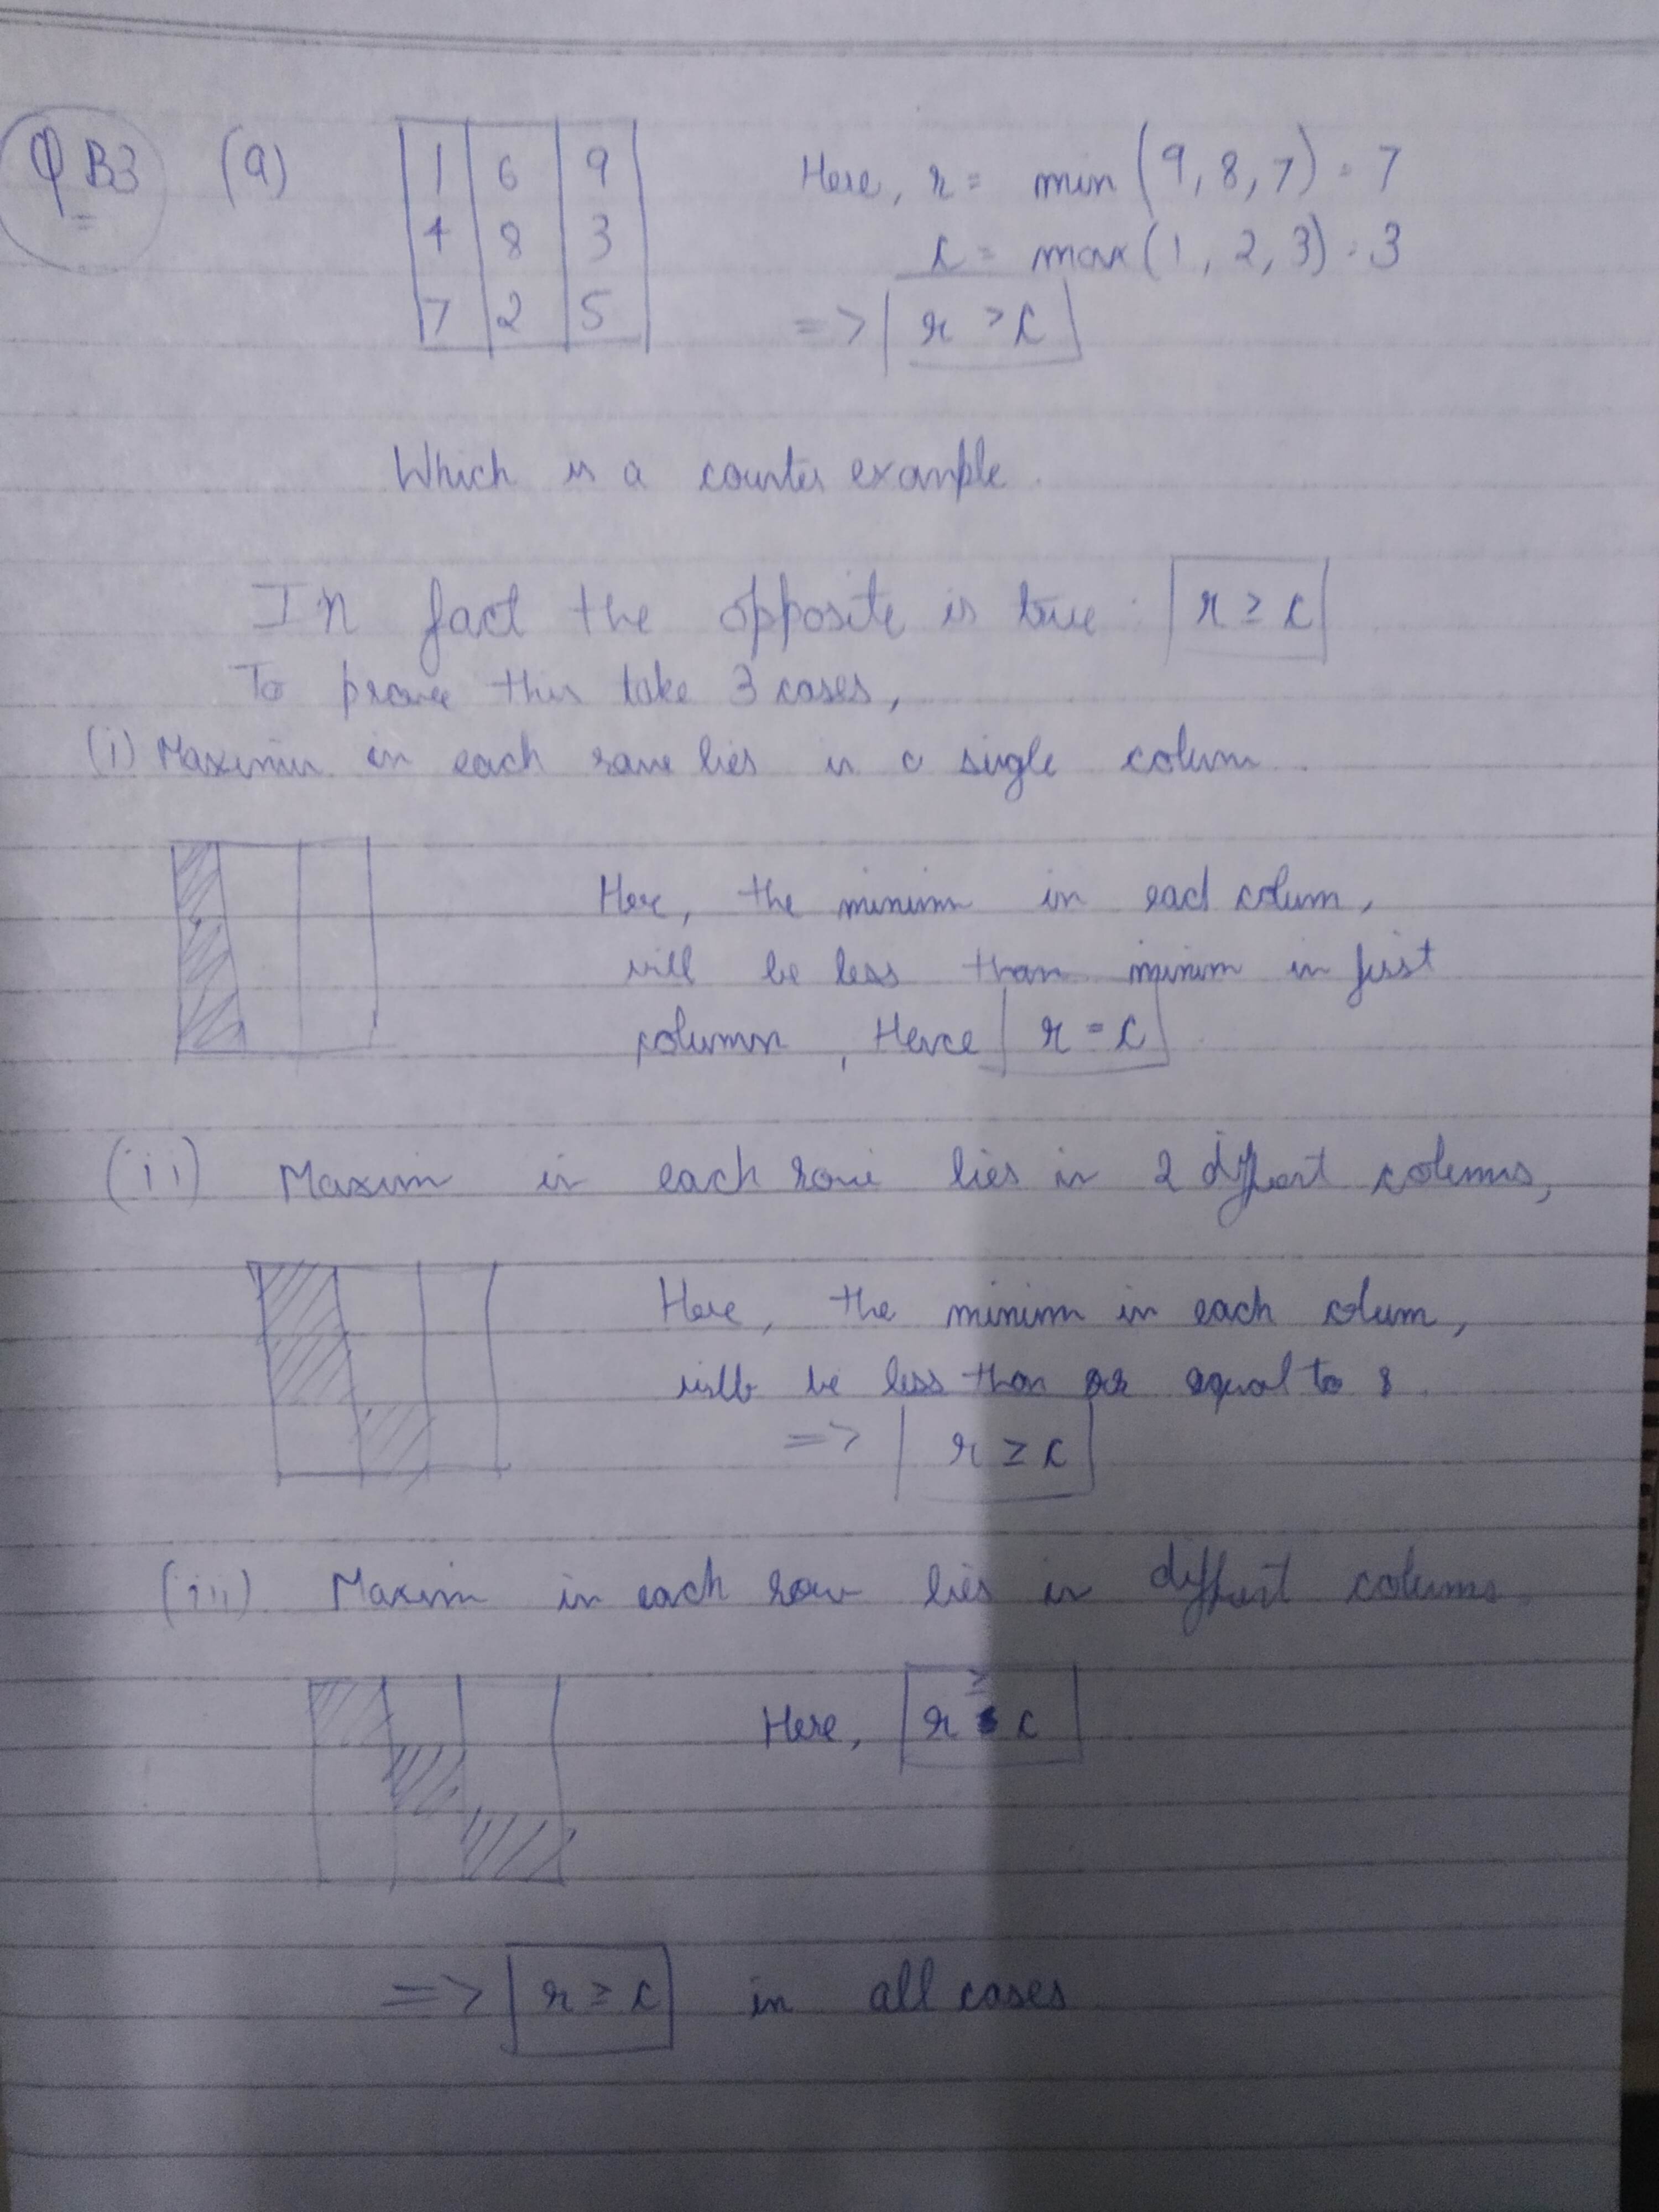 Q B3 (a) 1 6 9 Here, r = min (9, 8, 7) = 7
4 8 3 c = max (1, 2, 3) = 3
7 2 5 => r > c
Which is a counter example.
In fact the opposite is true : r ≥ c
To prove this take 3 cases,
(i) Maximum in each row lies in a single column.
Here, the minimum in each column,
will be less than minimum in first
column, Hence r = c
(ii) Maximum in each row lies in 2 different columns,
Here, the minimum in each column,
will be less than or equal to r
=> r ≥ c
(iii) Maximum in each row lies in different columns.
Here, r ≥ c
=> r ≥ c in all cases